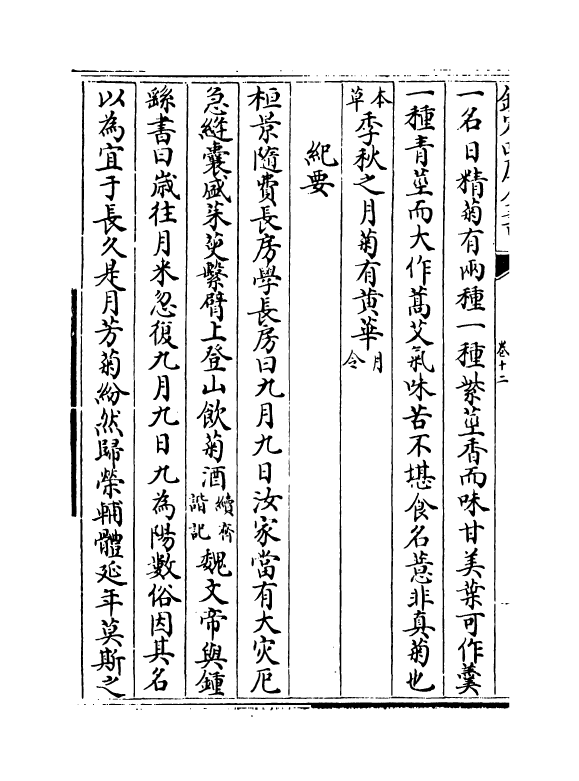 欽定四庫全書
卷十二
一名日精菊有兩種一種紫莖香而味甘美葉可作羹
一種青莖而大作蒿艾氣味苦不堪食名薏非真菊也
本草季秋之月菊有黄華月令
紀要
桓景隨費長房學長房曰九月九日汝家當有大灾厄
急縫囊盛茱萸繫臂上登山飲菊酒續齊諧記魏文帝與鍾
繇書曰歳往月来忽復九月九日九為陽數俗因其名
以為宜于長久是月芳菊紛然歸榮輔體延年莫斯之